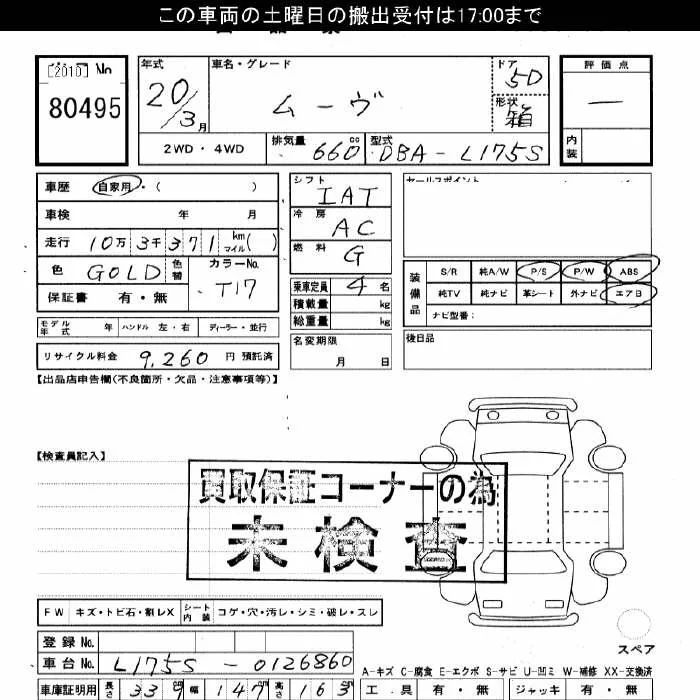 この車両の土曜日の搬出受付は17:00まで
[2010] No
80495
年式
20/3月
車名・グレード
ムーヴ
ドア
5D
形状
箱
評価点
—
内装
2WD・4WD
排気量 660 cc
型式 DBA-L175S
車歴 自家用・( )
車検 年 月
走行 10万3千371 km マイル( )
色 GOLD 色替
カラーNo.
T17
保証書 有・無
モデル年式 年 ハンドル 左・右 ディーラー・並行
リサイクル料金 9,260 円 預託済
シフト
IAT
冷房
AC
燃料
G
乗車定員 4 名
積載量 kg
総重量 kg
名変期限
月 日
セールスポイント
装備品
S/R 純A/W P/S P/W ABS
純TV 純ナビ 革シート 外ナビ エアB
ナビ型番:
後日品
【出品店申告欄(不良箇所・欠品・注意事項等)】
【検査員記入】
買取保証コーナーの為
未検査
FW キズ・トビ石・割レX シート内装 コゲ・穴・汚レ・シミ・破レ・スレ
登録No.
車台No. L175S-0126860
スペア
A-キズ C-腐食 E-エクボ S-サビ U-凹ミ W-補修 XX-交換済
車庫証明用 長さ 339 幅 147 高さ 163
工具 有・無 ジャッキ 有・無